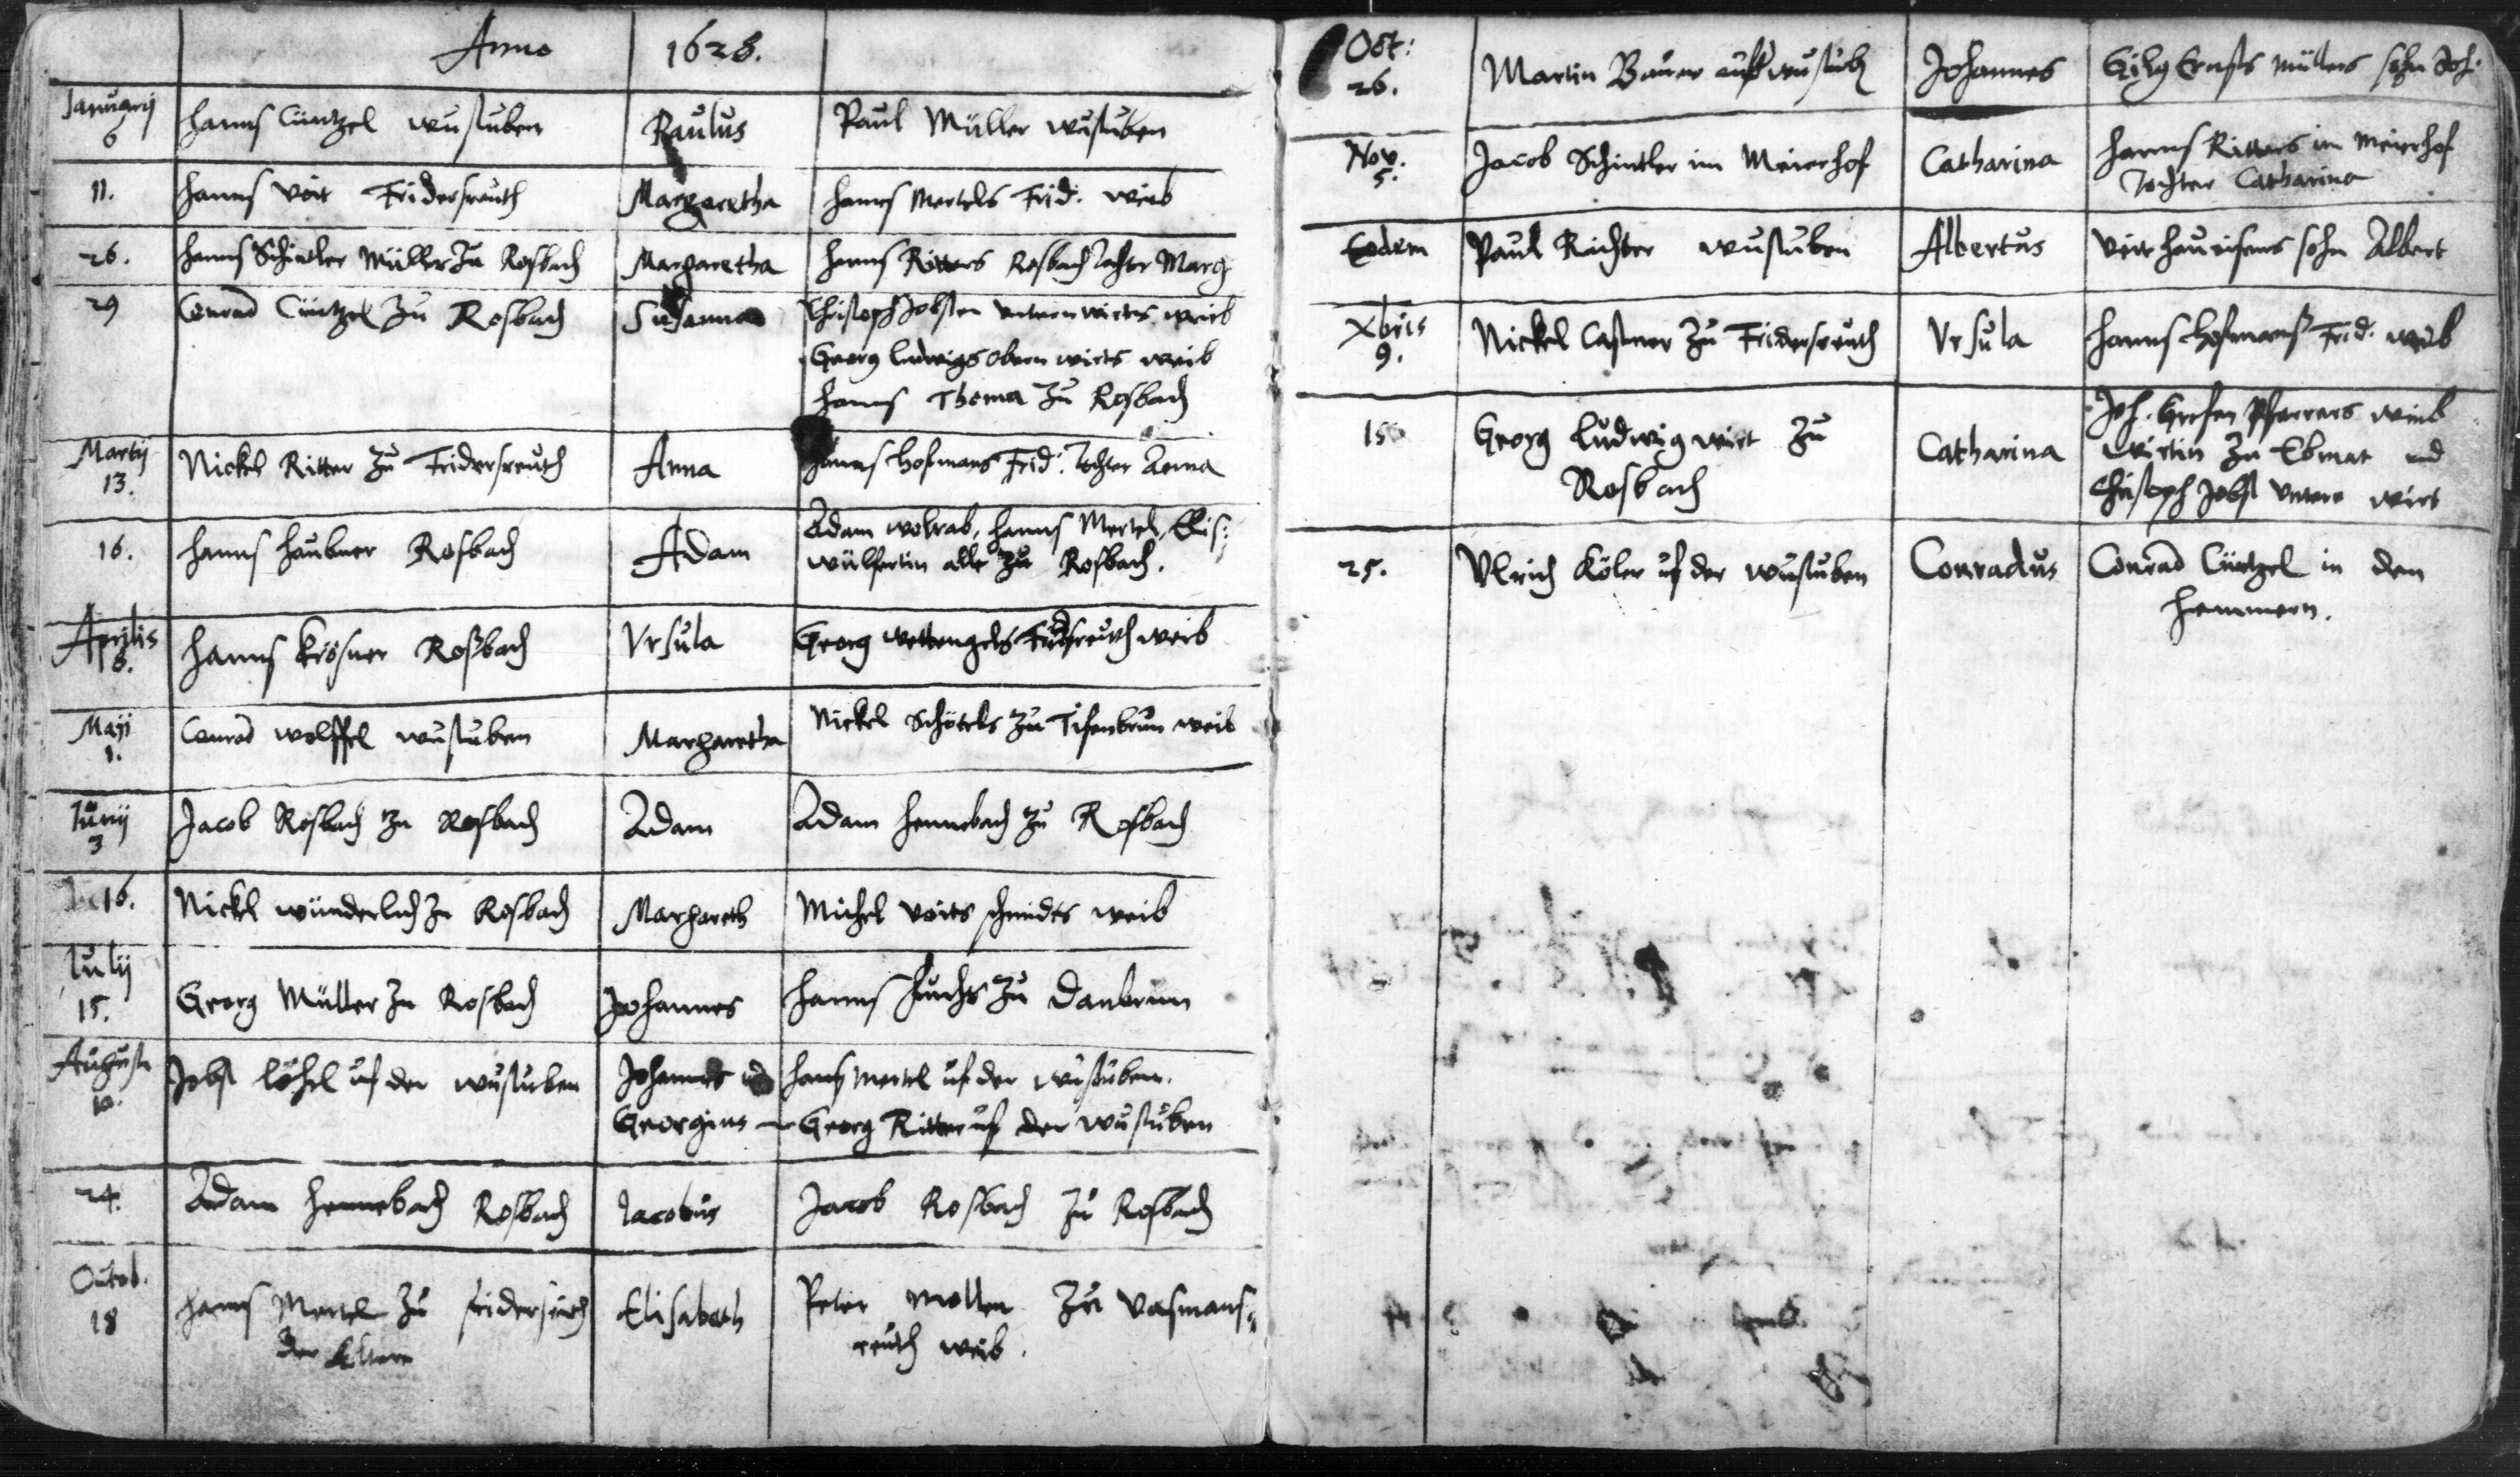 Anno 1628.
Januarij 6 Hanns Cüntzel wustuben Paulus Paul Müller wustuben
11. Hanns Voit Fridersreuth Margaretha Hanns Mertels Frid. weib
26. Hanns Schindler Müller zu Rosbach Margaretha Hanns Ritters Rosbach Tochter Marg
29 Conrad Cüntzel zu Rosbach Susanna Christoph Jobsten untern wirts weib
Georg Ludwigs obern wirts weib
Hanns Thoma zu Rosbach
Martij 13. Nickel Ritter zu Fridersreuth Anna Hanns Hofmans Frid. Tochter Anna
16. Hanns Haubner Rosbach Adam Adam wolrab, Hanns Mertel, Elis:
wülfertin alle zu Rosbach.
Aprilis 6. Hanns Krösner Rosbach Vrsula Georg wettengels Fridsreuth weib
Maji 1. Conrad wolffel wustuben Margaretha Nickel Schötels zu Tifenbrun weib
Junij 3 Jacob Rosbach zu Rosbach Adam Adam Hennebach zu Rosbach
16. Nickl wunderlich zu Rosbach Margareth Michel Voits schmidts weib
Julij 15. Georg Müller zu Rosbach Johannes Hanns Fuchs zu Danbrunn
Augusti 10. Jobst Löhel uf der wustuben Johannes Hanns Mertel uf der wustuben.
Georgius Georg Ritter uf der wustuben
24. Adam Hennebach Rosbach Jacobus Jacob Rosbach zu Rosbach
Octob. 18 Hanns Mertel zu Fridersreuth Elisabeth Peter Mollen zu Vasmans=
der Elter reuth weib.
Oct: 26. Martin Bauer auf wustub Johannes Gilg Ernsts Müllers sohn Joh.
Nov. 5. Jacob Schindler im Meierhof Catharina Hanns Ritters im Meierhof
Tochter Catharina
Eodem Paul Richter wustuben Albertus Veit Haueisens sohn Albert
Xbris 9. Nickel Castner zu Fridersreuth Vrsula Hanns Hofmans Frid. weib
15 Georg Ludwig wirt zu Catharina Joh. Pfarrers weib
Rosbach wirtin zu Ebmat und
Christoph Jobst untere wirt
25. Vlrich Köler uf der wustuben Conradus Conrad Cüntzel in dem
Hemmern.